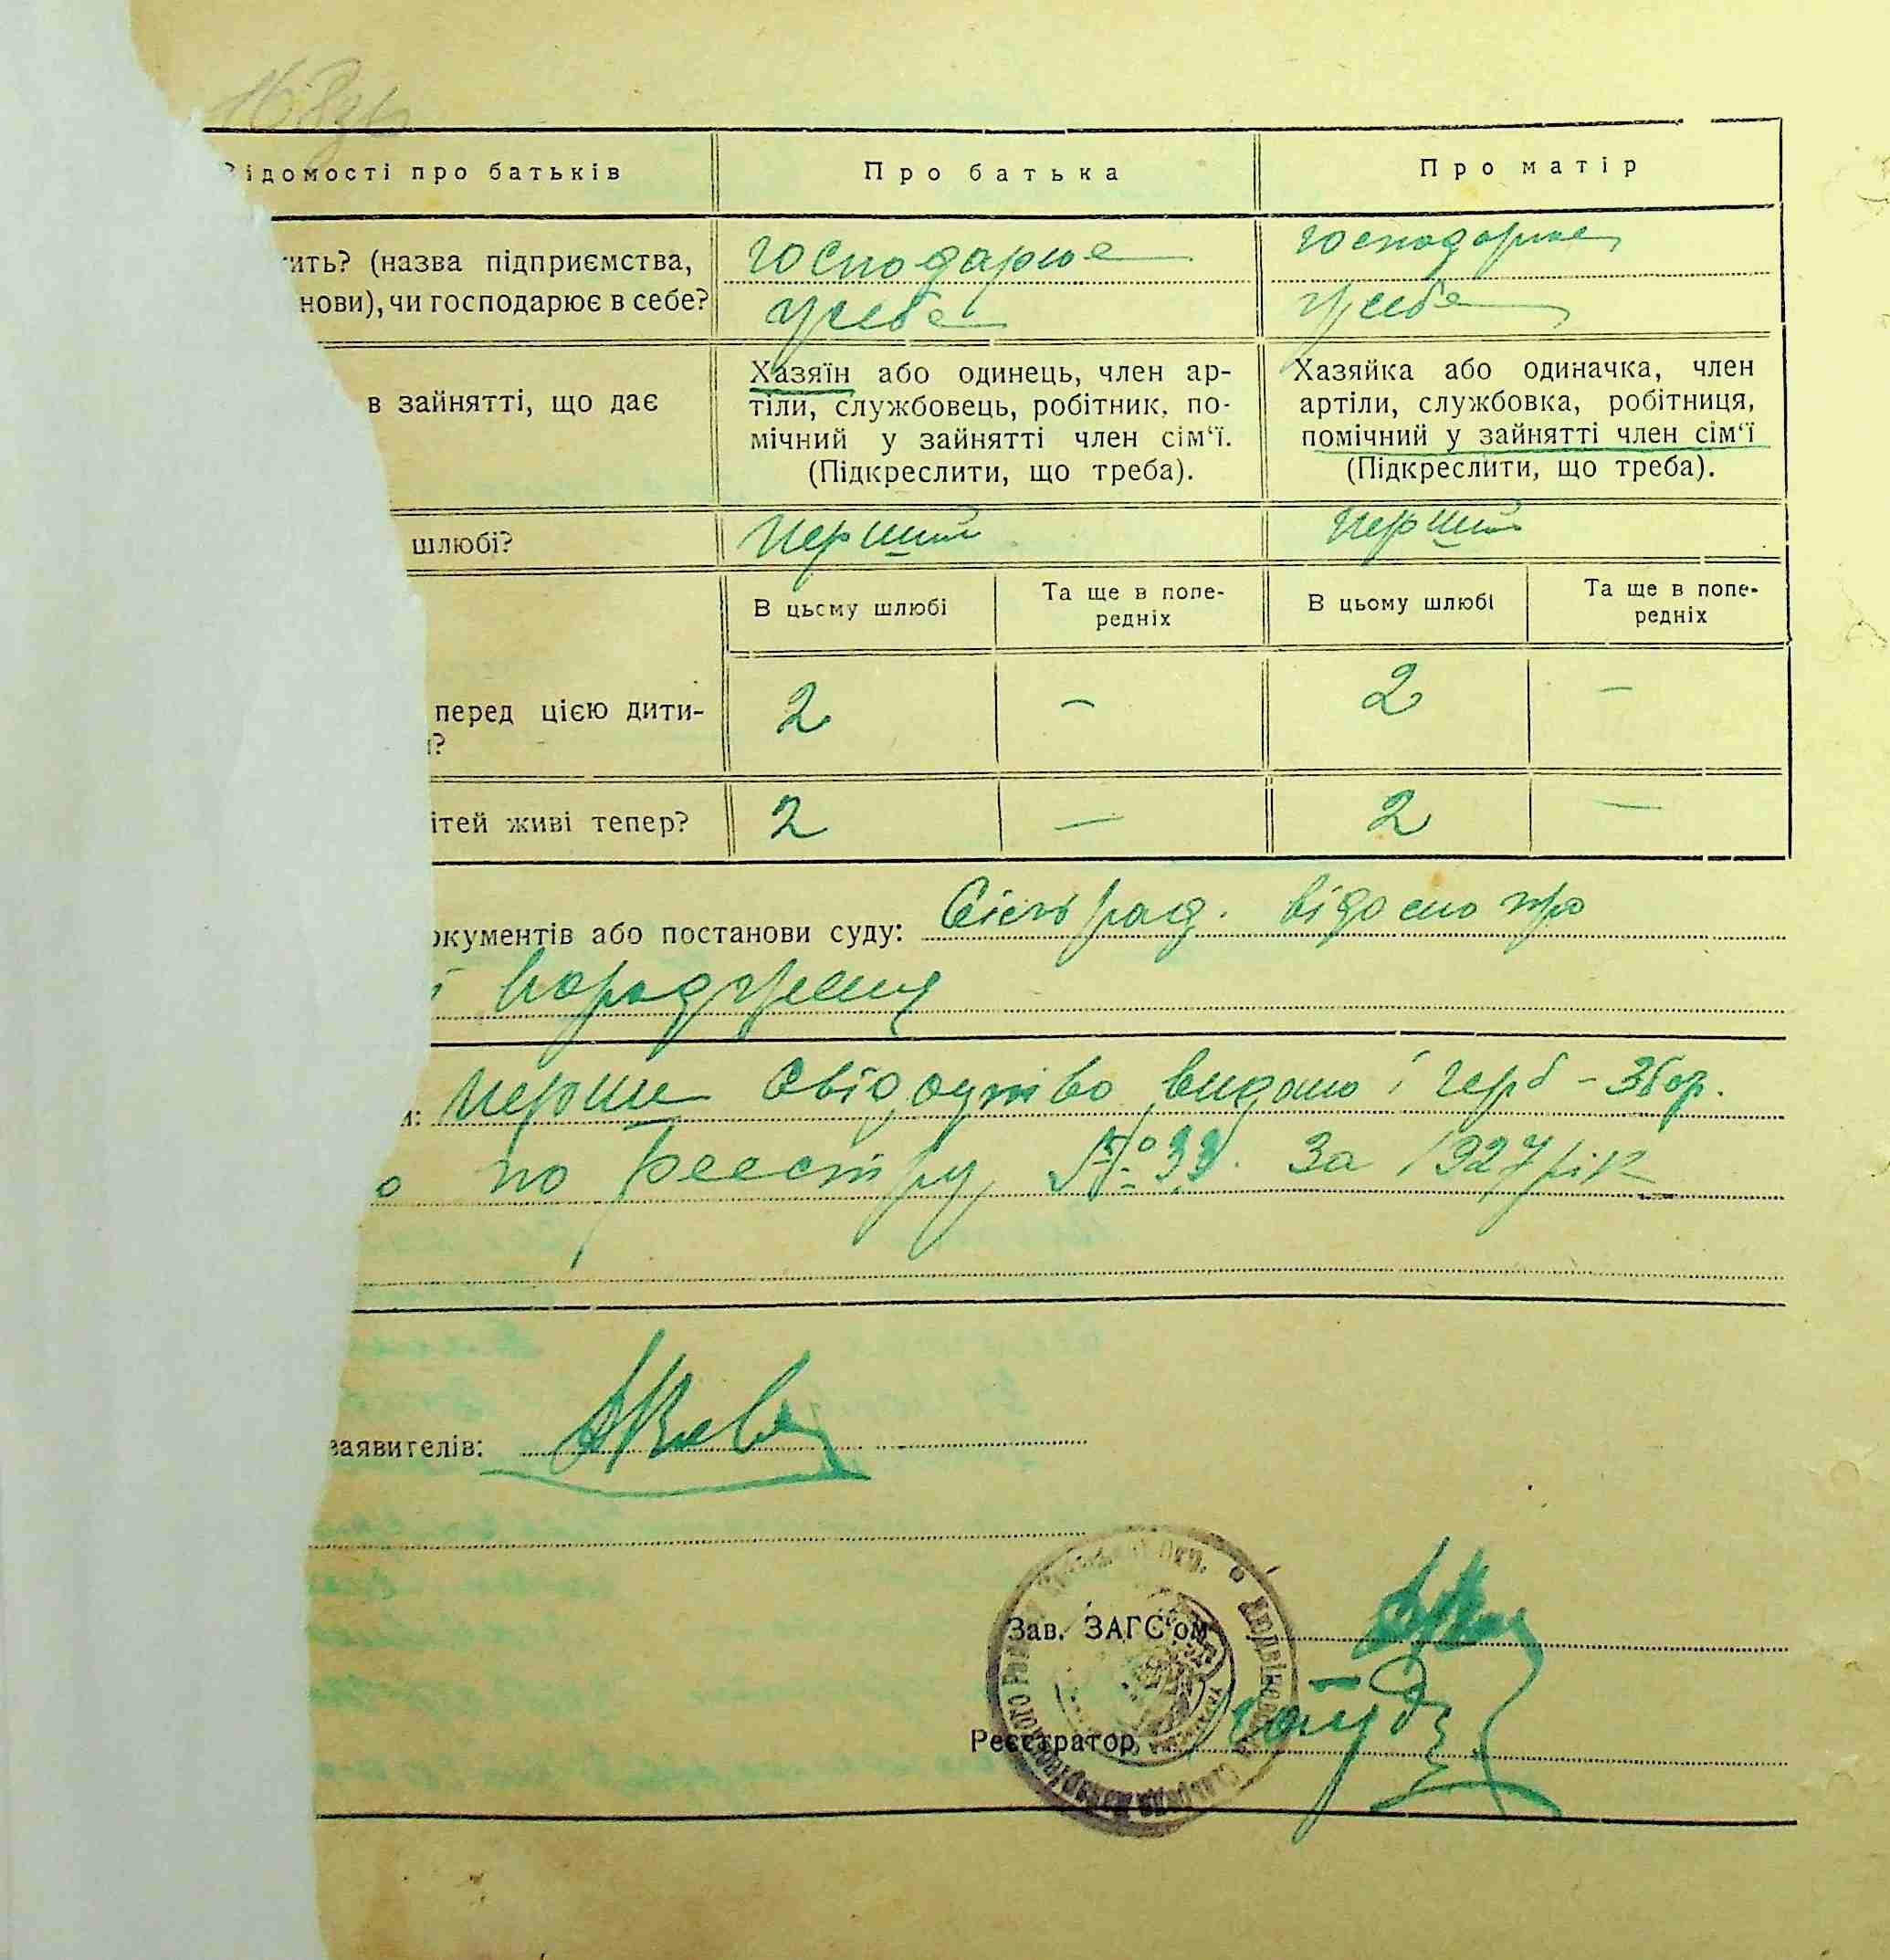 ідомості про батьків
Про батька
Про матір
ить? (назва підприємства,
нови), чи господарює в себе?
господарює
у себе
господарює
у себе
в зайнятті, що дає
Хазяїн або одинець, член ар-
тіли, службовець, робітник, по-
мічний у зайнятті член сім'ї.
(Підкреслити, що треба).
Хазяйка або одиначка, член
артіли, службовка, робітниця,
помічний у зайнятті член сім'ї
(Підкреслити, що треба).
шлюбі?
Перший
Перший
В цьому шлюбі
Та ще в попе-
редніх
В цьому шлюбі
Та ще в попе-
редніх
перед цією дити-
?
2
–
2
–
ітей живі тепер?
2
—
2
—
окументів або постанови суду: Сільрад. відомо про
народження
и: Перше свідоцтво видано і герб-збор.
о по реєстру № 33. За 1927 рік
заявителів:
Зав. ЗАГС'ом
Реєстратор